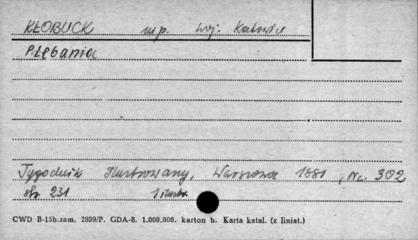 KŁOBUCK m.p. woj. Katowice
PLEBANIA
Tygodnik Ilustrowany, Warszawa 1881, Nr. 302
str. 231 1 ilustr.
CWD B-15b.zam. 2899/P. GDA-8. 1.000,000. karton b. Karta katal. (z liniat.)